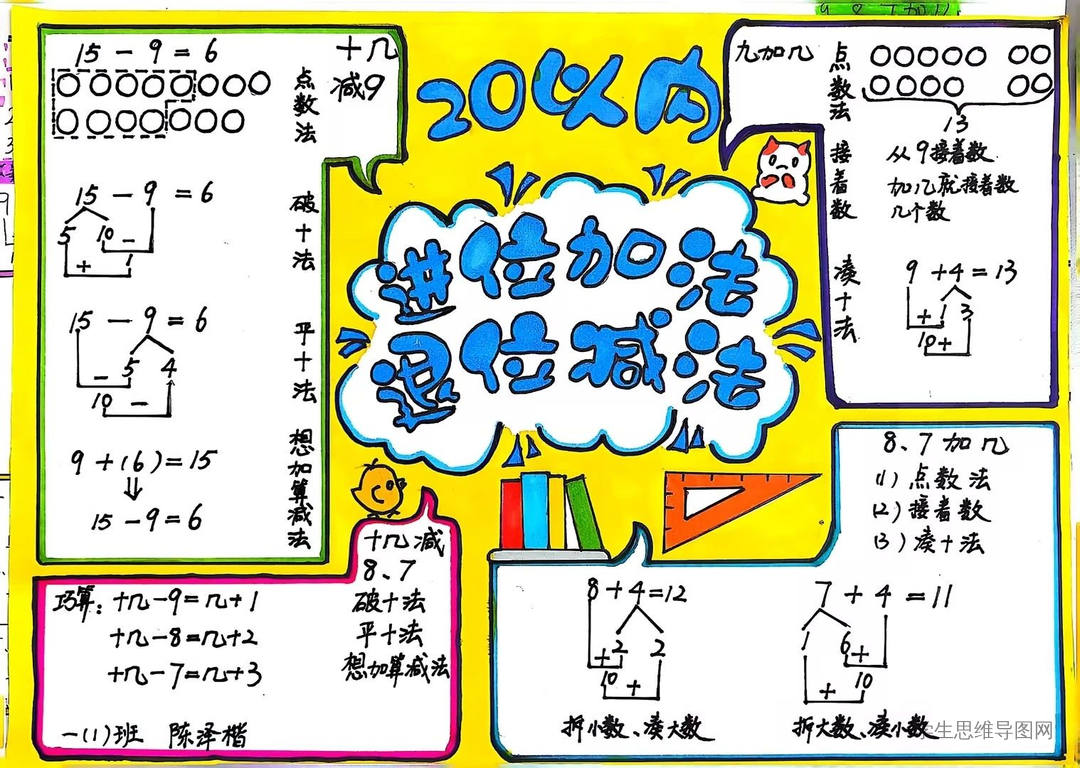 20以内
进位加法
退位减法
十几
减9
15-9=6
点数法
15-9=6
5 10 -
+ 1
破十法
15-9=6
5 4
-
10 -
平十法
9+(6)=15
⇓
15-9=6
想加算减法
九加几
点数法
13
接着数
从9接着数
加几就接着数
几个数
凑十法
9+4=13
+ 1 3
10+
十几减
8、7
破十法
平十法
想加算减法
巧算:十几-9=几+1
十几-8=几+2
十几-7=几+3
一(1)班 陈泽楷
8、7加几
(1)点数法
(2)接着数
(3)凑十法
8+4=12
+2 2
10 +
拆小数、凑大数
7+4=11
1 6 +
+ 10
拆大数、凑小数
生思维导图网